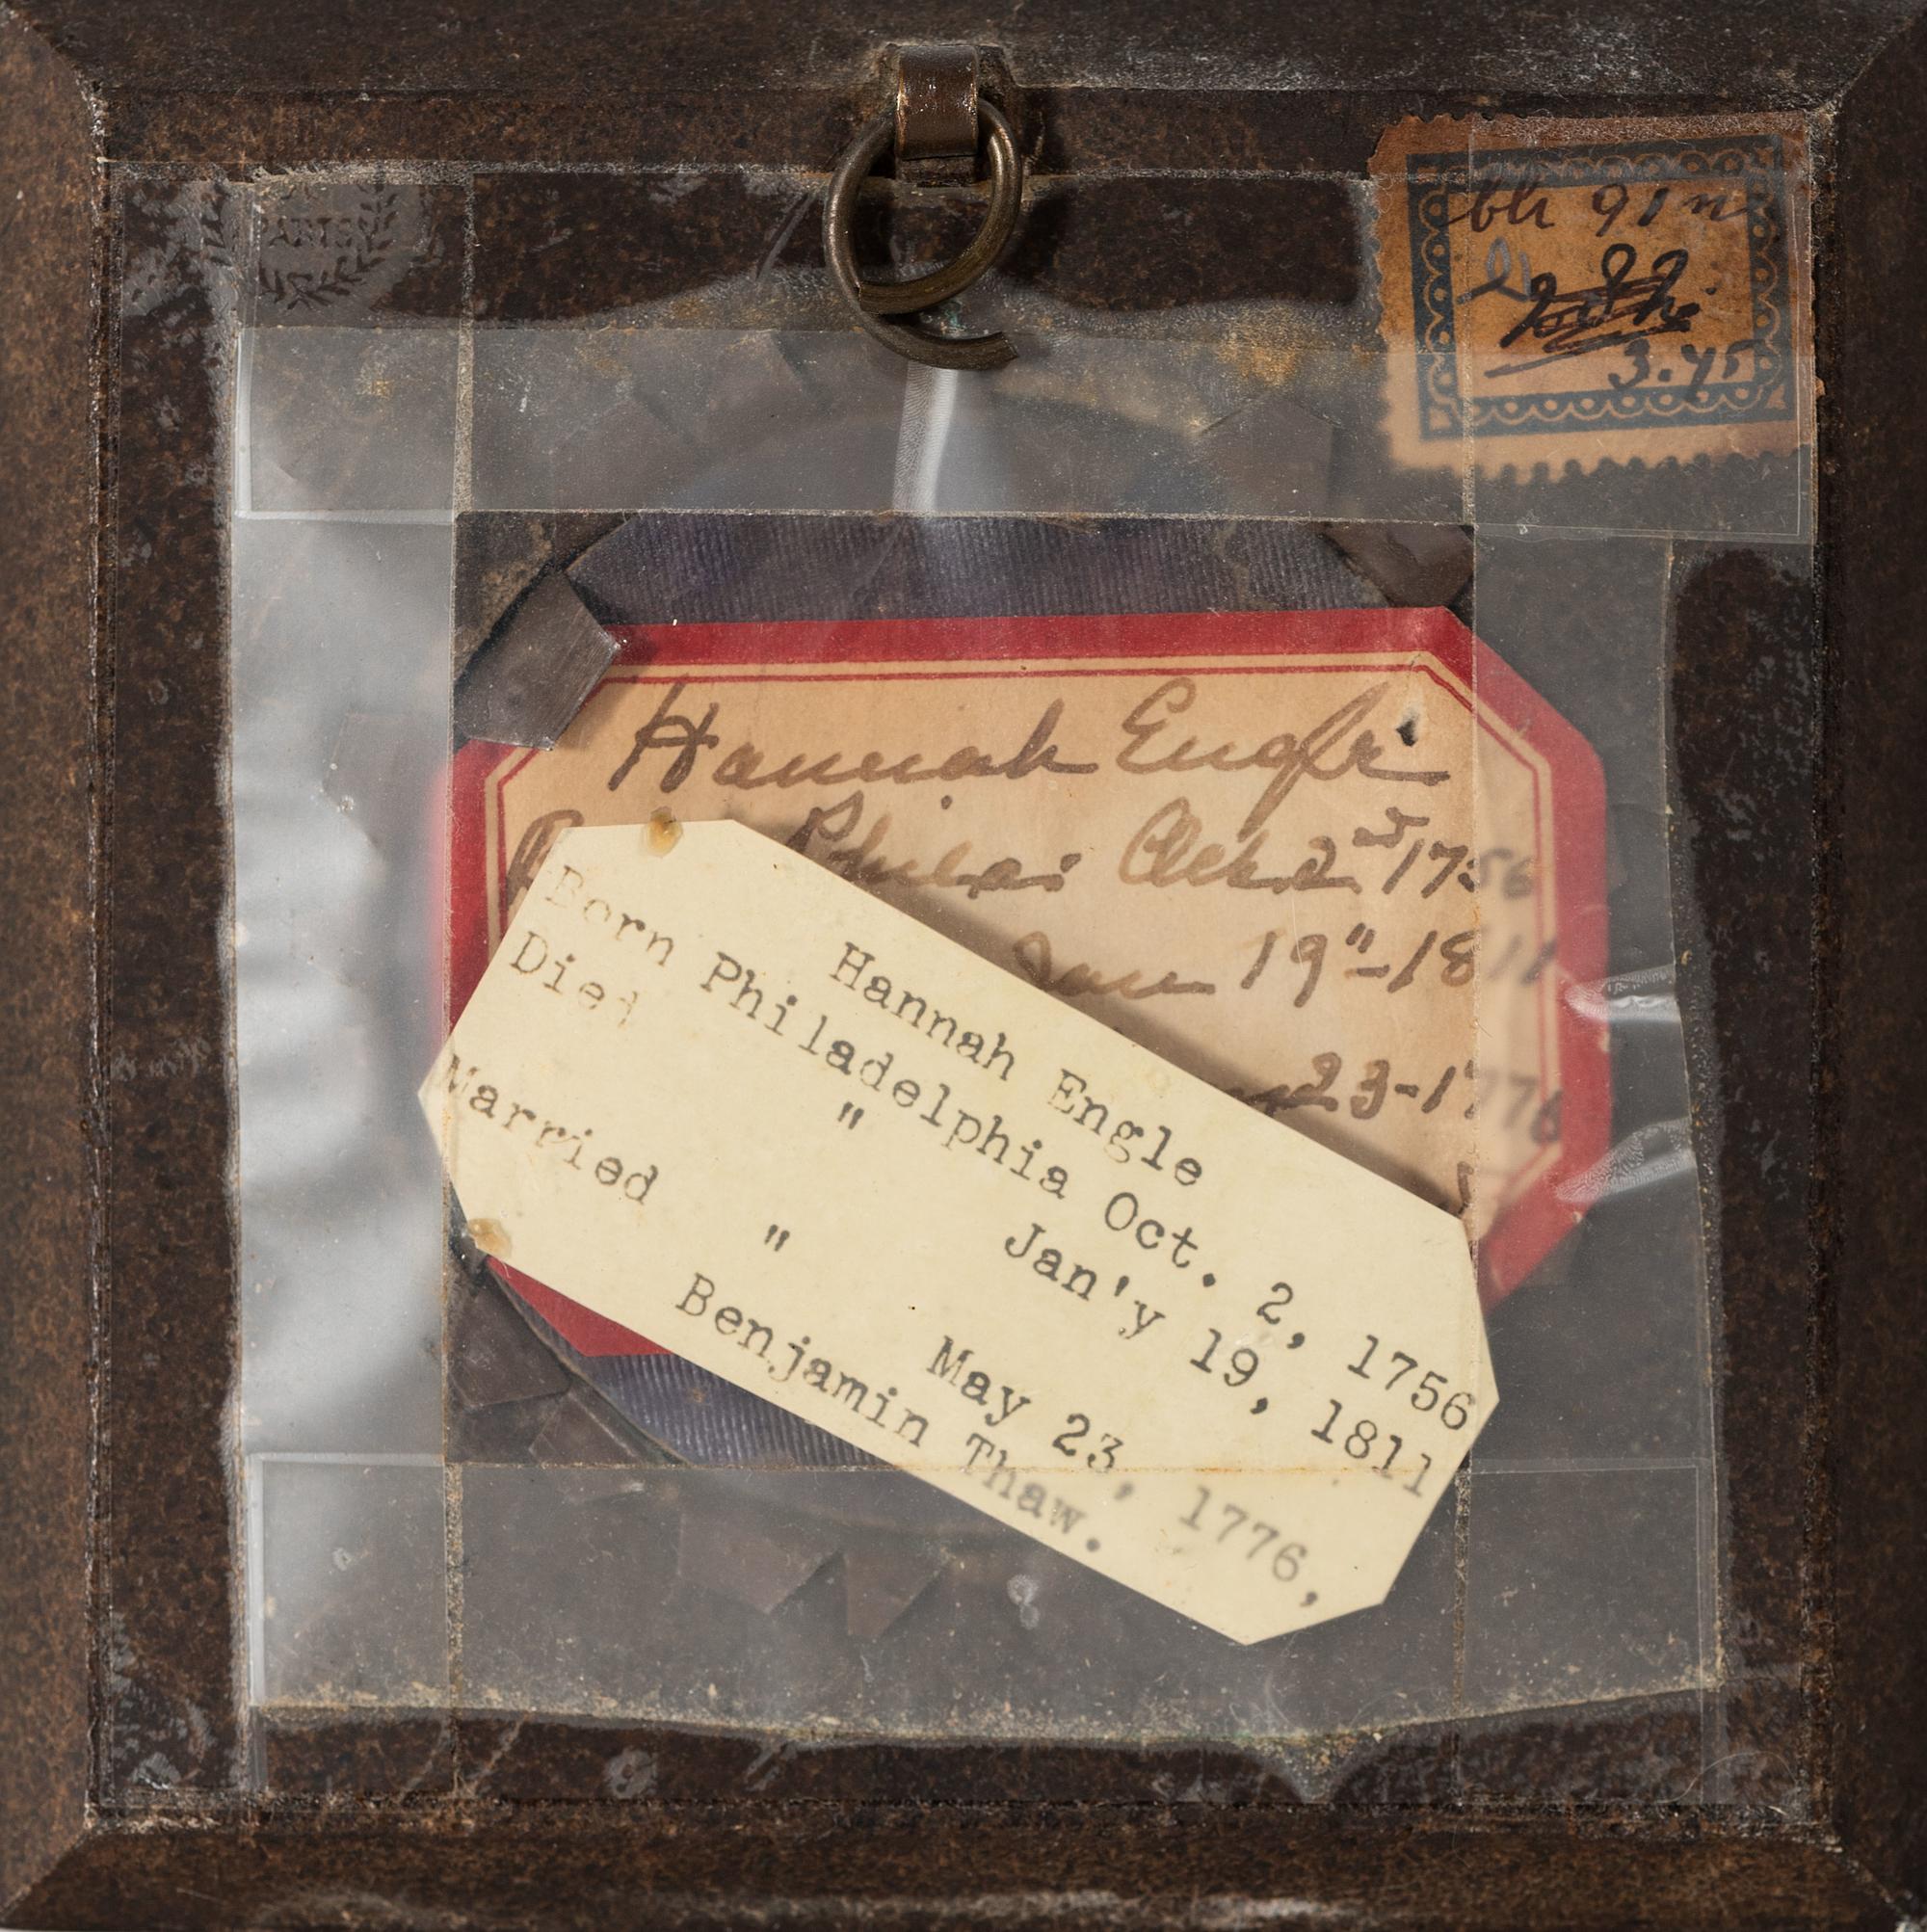 PARIS
3.45
Hannah Engle
Phila: Oct. 2nd 1756
Jan 19"-1811
23-1776
Hannah Engle
Born Philadelphia Oct. 2, 1756
Died " Jan'y 19, 1811
Married " May 23, 1776,
Benjamin Thaw.